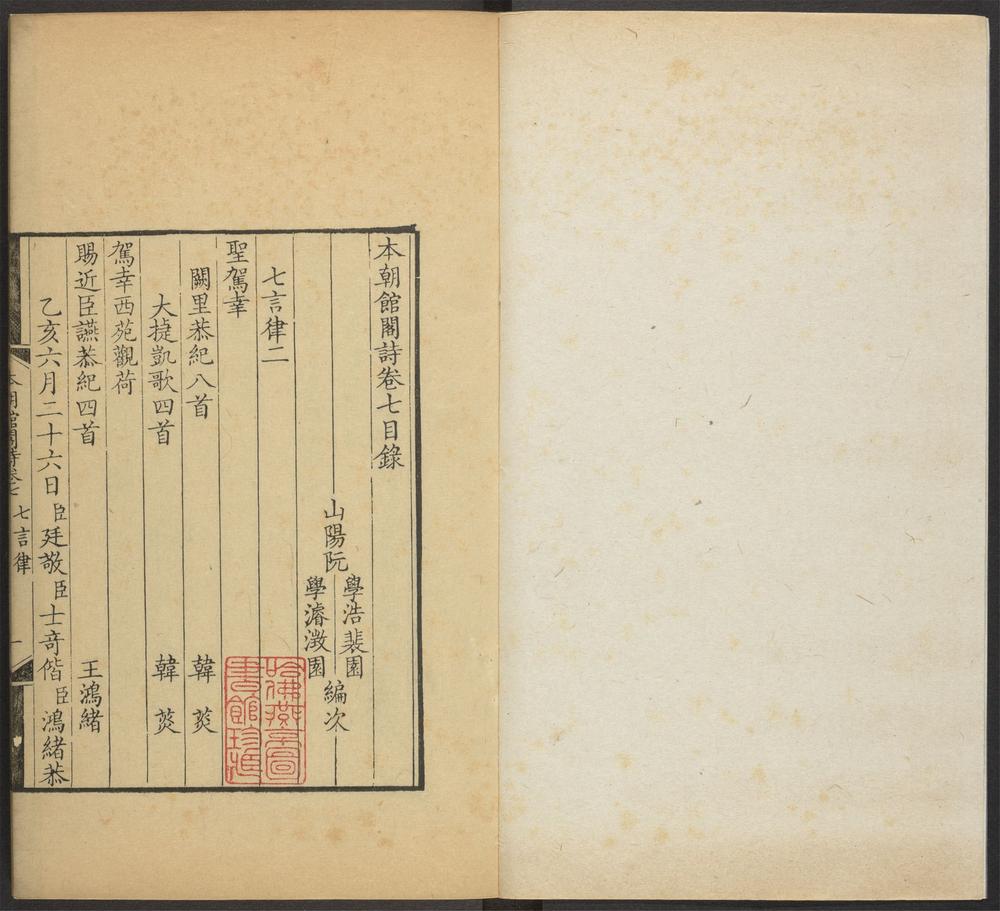 本朝館閣詩卷七目錄
山陽阮
學浩裴園
學濬澂園
編次
七言律二
聖駕幸
闕里恭紀八首 韓菼
大捷凱歌四首 韓菼
駕幸西苑觀荷
賜近臣讌恭紀四首 王鴻緒
乙亥六月二十六日臣廷敬臣士奇偕臣鴻緒恭
本朝館閣詩卷七 七言律 一
哈佛燕京圖
書館珍藏